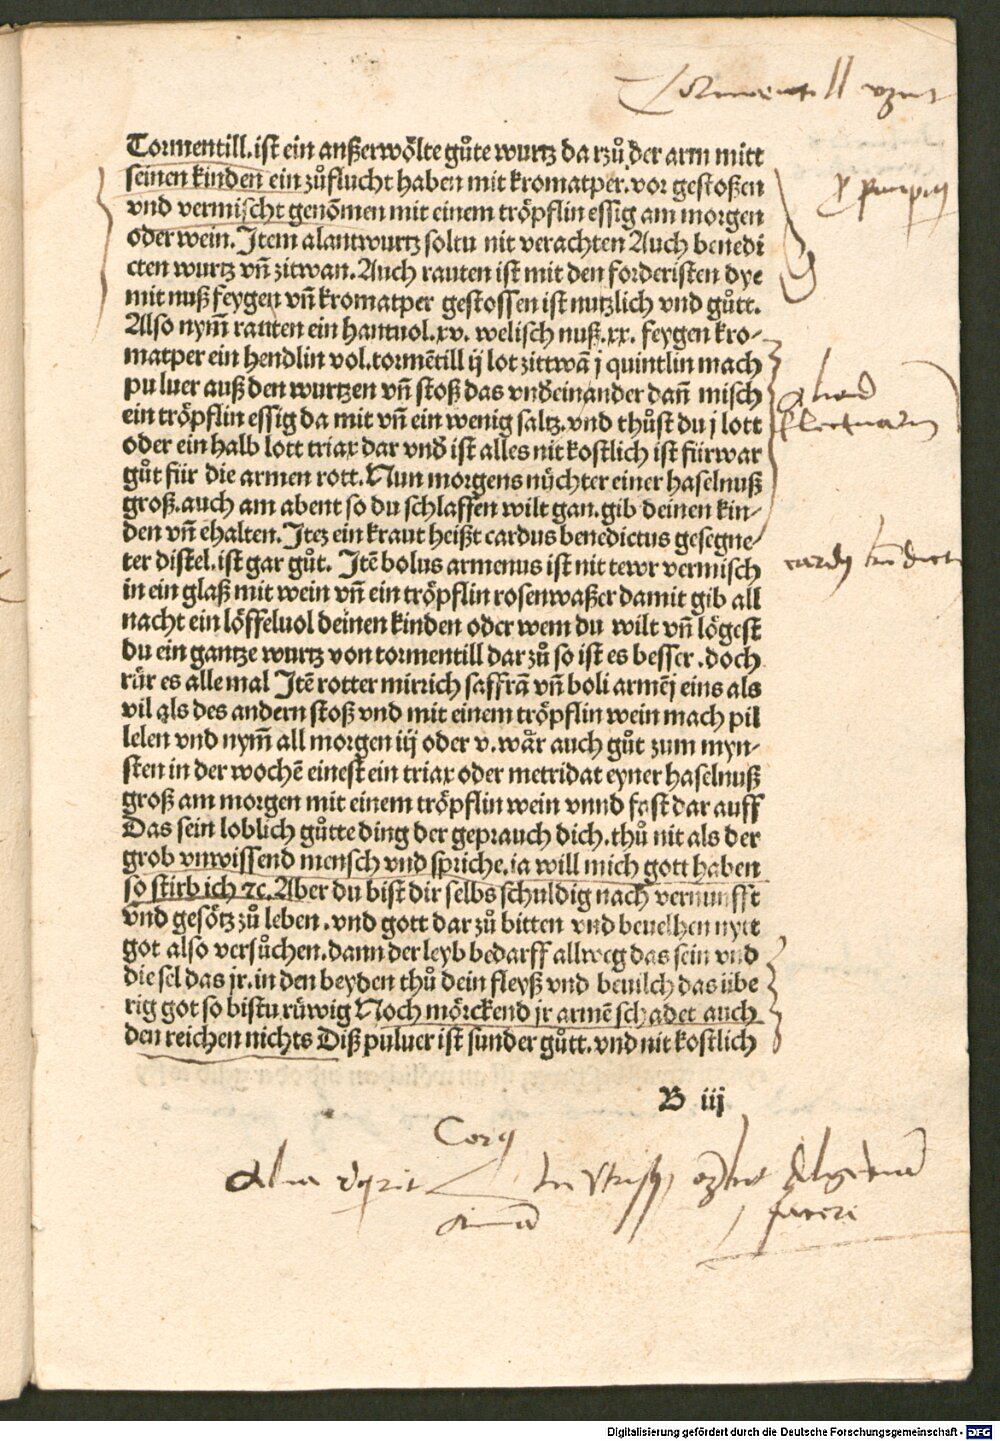 Tormentill wurtz
Tormentill. ist ein außerwölte gůte wurtz da rzů der arm mitt
seinen kinden ein zůflucht haben mit kromatper. vor gestoßen
vnd vermischt genōmen mit einem tröpflin essig am morgen
oder wein. Item alantwurtz soltu nit verachten Auch benedi
cten wurtz vñ zitwan. Auch rauten ist mit den forderisten dye
mit nuß feygen vñ kromatper gestossen ist nutzlich vnd gůtt.
Also nym̄ rauten ein hantuol. xv. welisch nuß. xx. feygen kro-
matper ein hendlin vol. tormētill ij lot zittwā j quintlin mach
pu luer auß den wurtzen vñ stoß das vnđeinander dañ misch
ein tröpflin essig da mit vñ ein wenig saltz. vnd thůst du j lott
oder ein halb lott triax dar vnđ ist alles nit kostlich ist fürwar
gůt für die armen rott. Nun morgens nüchter einer haselnuß
groß. auch am abent so du schlaffen wilt gan. gib deinen kin-
den vñ ehalten. Itez ein kraut heißt cardus benedictus gesegne-
ter distel. ist gar gůt. Itē bolus armenus ist nit tewr vermisch
in ein glaß mit wein vñ ein tröpflin rosenwaßer damit gib all
nacht ein löffeluol deinen kinden oder wem du wilt vñ lögest
du ein gantze wurtz von tormentill dar zů so ist es besser. doch
rür es alle mal Itē rotter mirrich saffrā vñ boli armēj eins als
vil als des andern stoß vnd mit einem tröpflin wein mach pil
lelen vnd nym̄ all morgen iij oder v. wår auch gůt zum myn-
sten in der wochē einest ein triax oder metridat eyner haselnuß
groß am morgen mit einem tröpflin wein vnnd fast dar auff
Das sein loblich gůtte ding der geprauch dich. thů nit als der
grob vnwissend mensch vnd spriche. ia will mich gott haben
so stirb ich ⁊c. Aber du bist dir selbs schuldig nach vernunfft
vnd gesötz zů leben. vnd gott dar zů bitten vnd beuelhen nytt
got also versůchen. dann der leyb bedarff allweg das sein vnd
die sel das jr. in den beyden thů dein fleyß vnd beuilch das übe
rig got so bistu růwig Noch mörckend jr armē schadet auch
den reichen nichts Diß puluer ist sunder gůtt. vnd nit kostlich
B iij